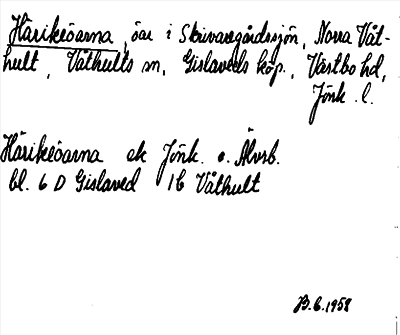 Härikeöarna, öar i Skrivaregårdssjön, Norra Våt-
hult, Våthults sn, Gislaveds köp., Västbo hd,
Jönk. l.
Härikeöarna ek Jönk. o. Älvsb.
bl. 6 D Gislaved 1b Våthult
B.6.1958